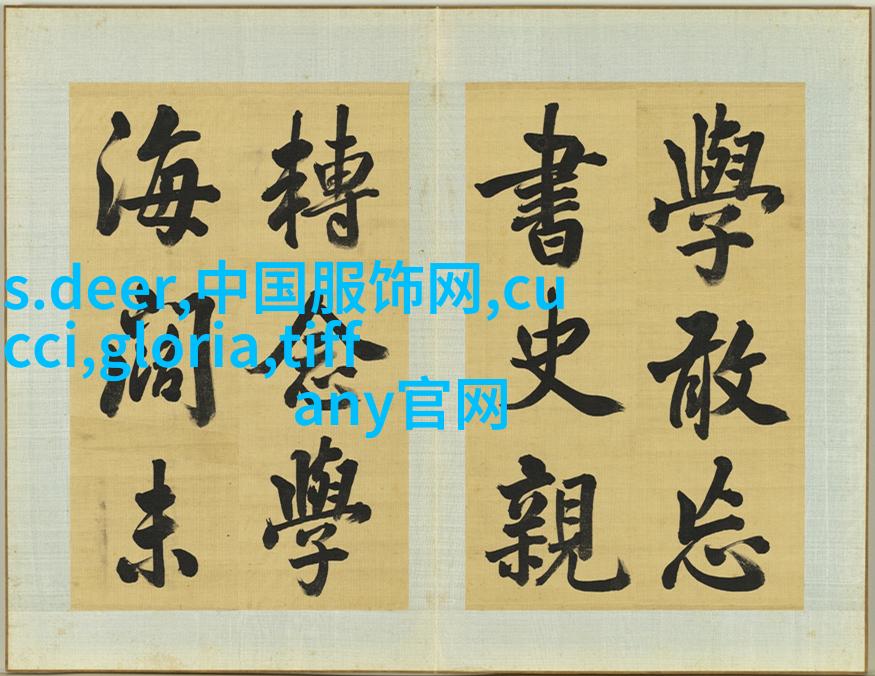 學敢忘
書史親
轉念學
海未
s.deer,中国服饰网,cu
cci,gloria,tiff
any官网